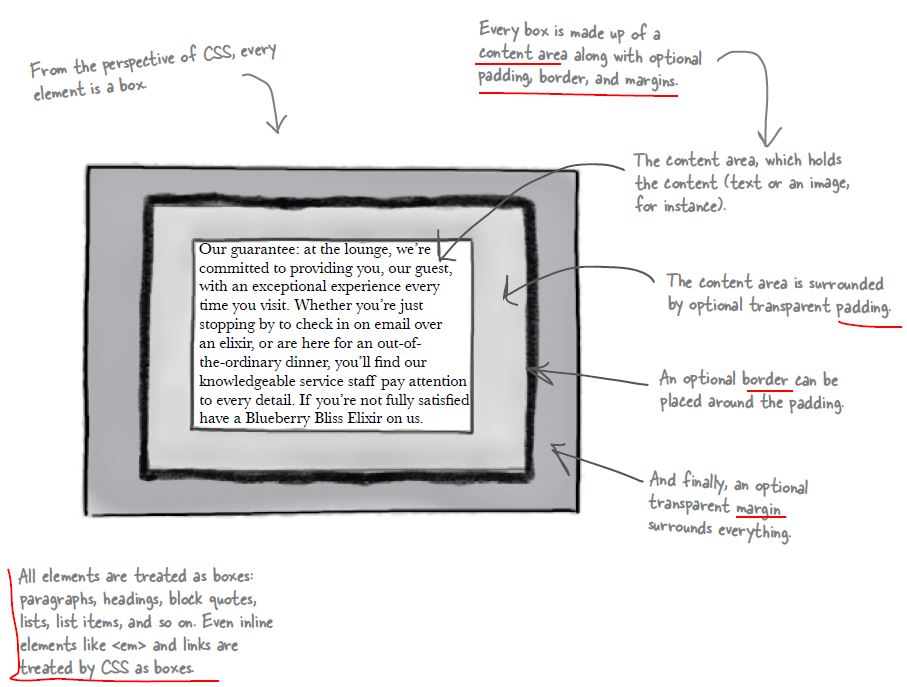 From the perspective of CSS, every
element is a box.
Every box is made up of a
content area along with optional
padding, border, and margins.
The content area, which holds
the content (text or an image,
for instance).
Our guarantee: at the lounge, we're
committed to providing you, our guest,
with an exceptional experience every
time you visit. Whether you're just
stopping by to check in on email over
an elixir, or are here for an out-of-
the-ordinary dinner, you'll find our
knowledgeable service staff pay attention
to every detail. If you're not fully satisfied
have a Blueberry Bliss Elixir on us.
The content area is surrounded
by optional transparent padding.
An optional border can be
placed around the padding.
And finally, an optional
transparent margin
surrounds everything.
All elements are treated as boxes:
paragraphs, headings, block quotes,
lists, list items, and so on. Even inline
elements like <em> and links are
treated by CSS as boxes.